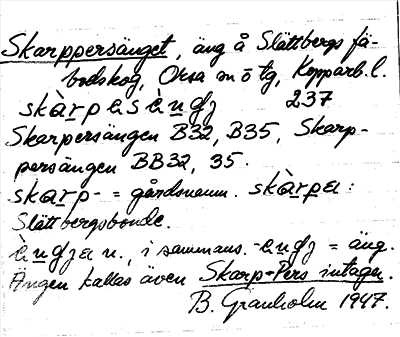 Skarppersänget, äng å Slättbergs fä-
bodskog, Orsa sn ö tg, Kopparb. l.
237
Skarpersängen B32, B35, Skarp-
persängen BB32, 35.
skarp- = gårdsnamn. skàrpa:
Slättbergsbonde.
n., i sammans. = äng.
Ängen kallas även Skarp-Pers intagan.
B. Granholm 1947.